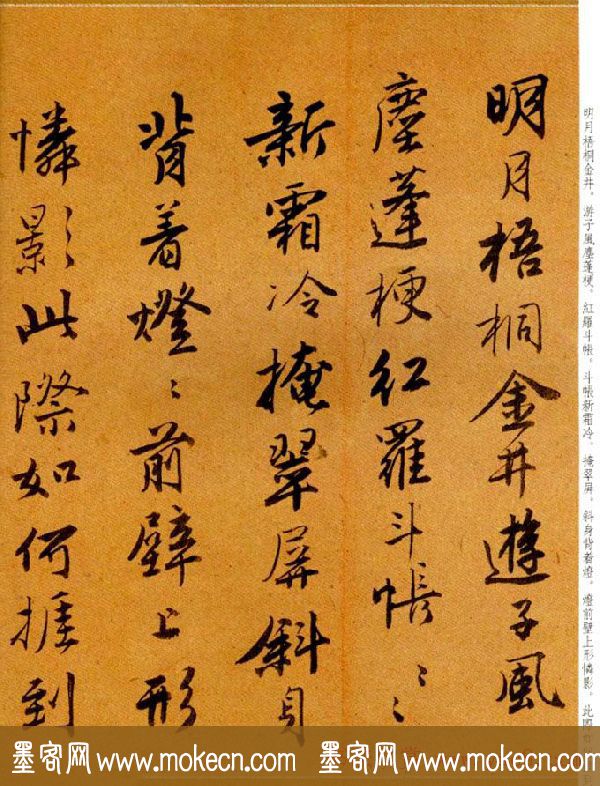 明月梧桐金井遊子風
塵蓬梗紅羅斗帳〻〻
新霜冷掩翠屏斜身
背着燈〻前壁上形
憐影此際如何捱到
明月梧桐金井，游子風塵蓬梗。紅羅斗帳，斗帳新霜冷。掩翠屏，斜身背着燈。燈前壁上形憐影。此
墨客网 www.mokecn.com 墨客网 www.mokecn.com